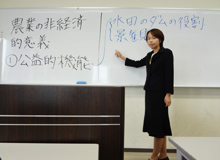 農業の非経済
的意義
①公益的機能
水田のダムの役割